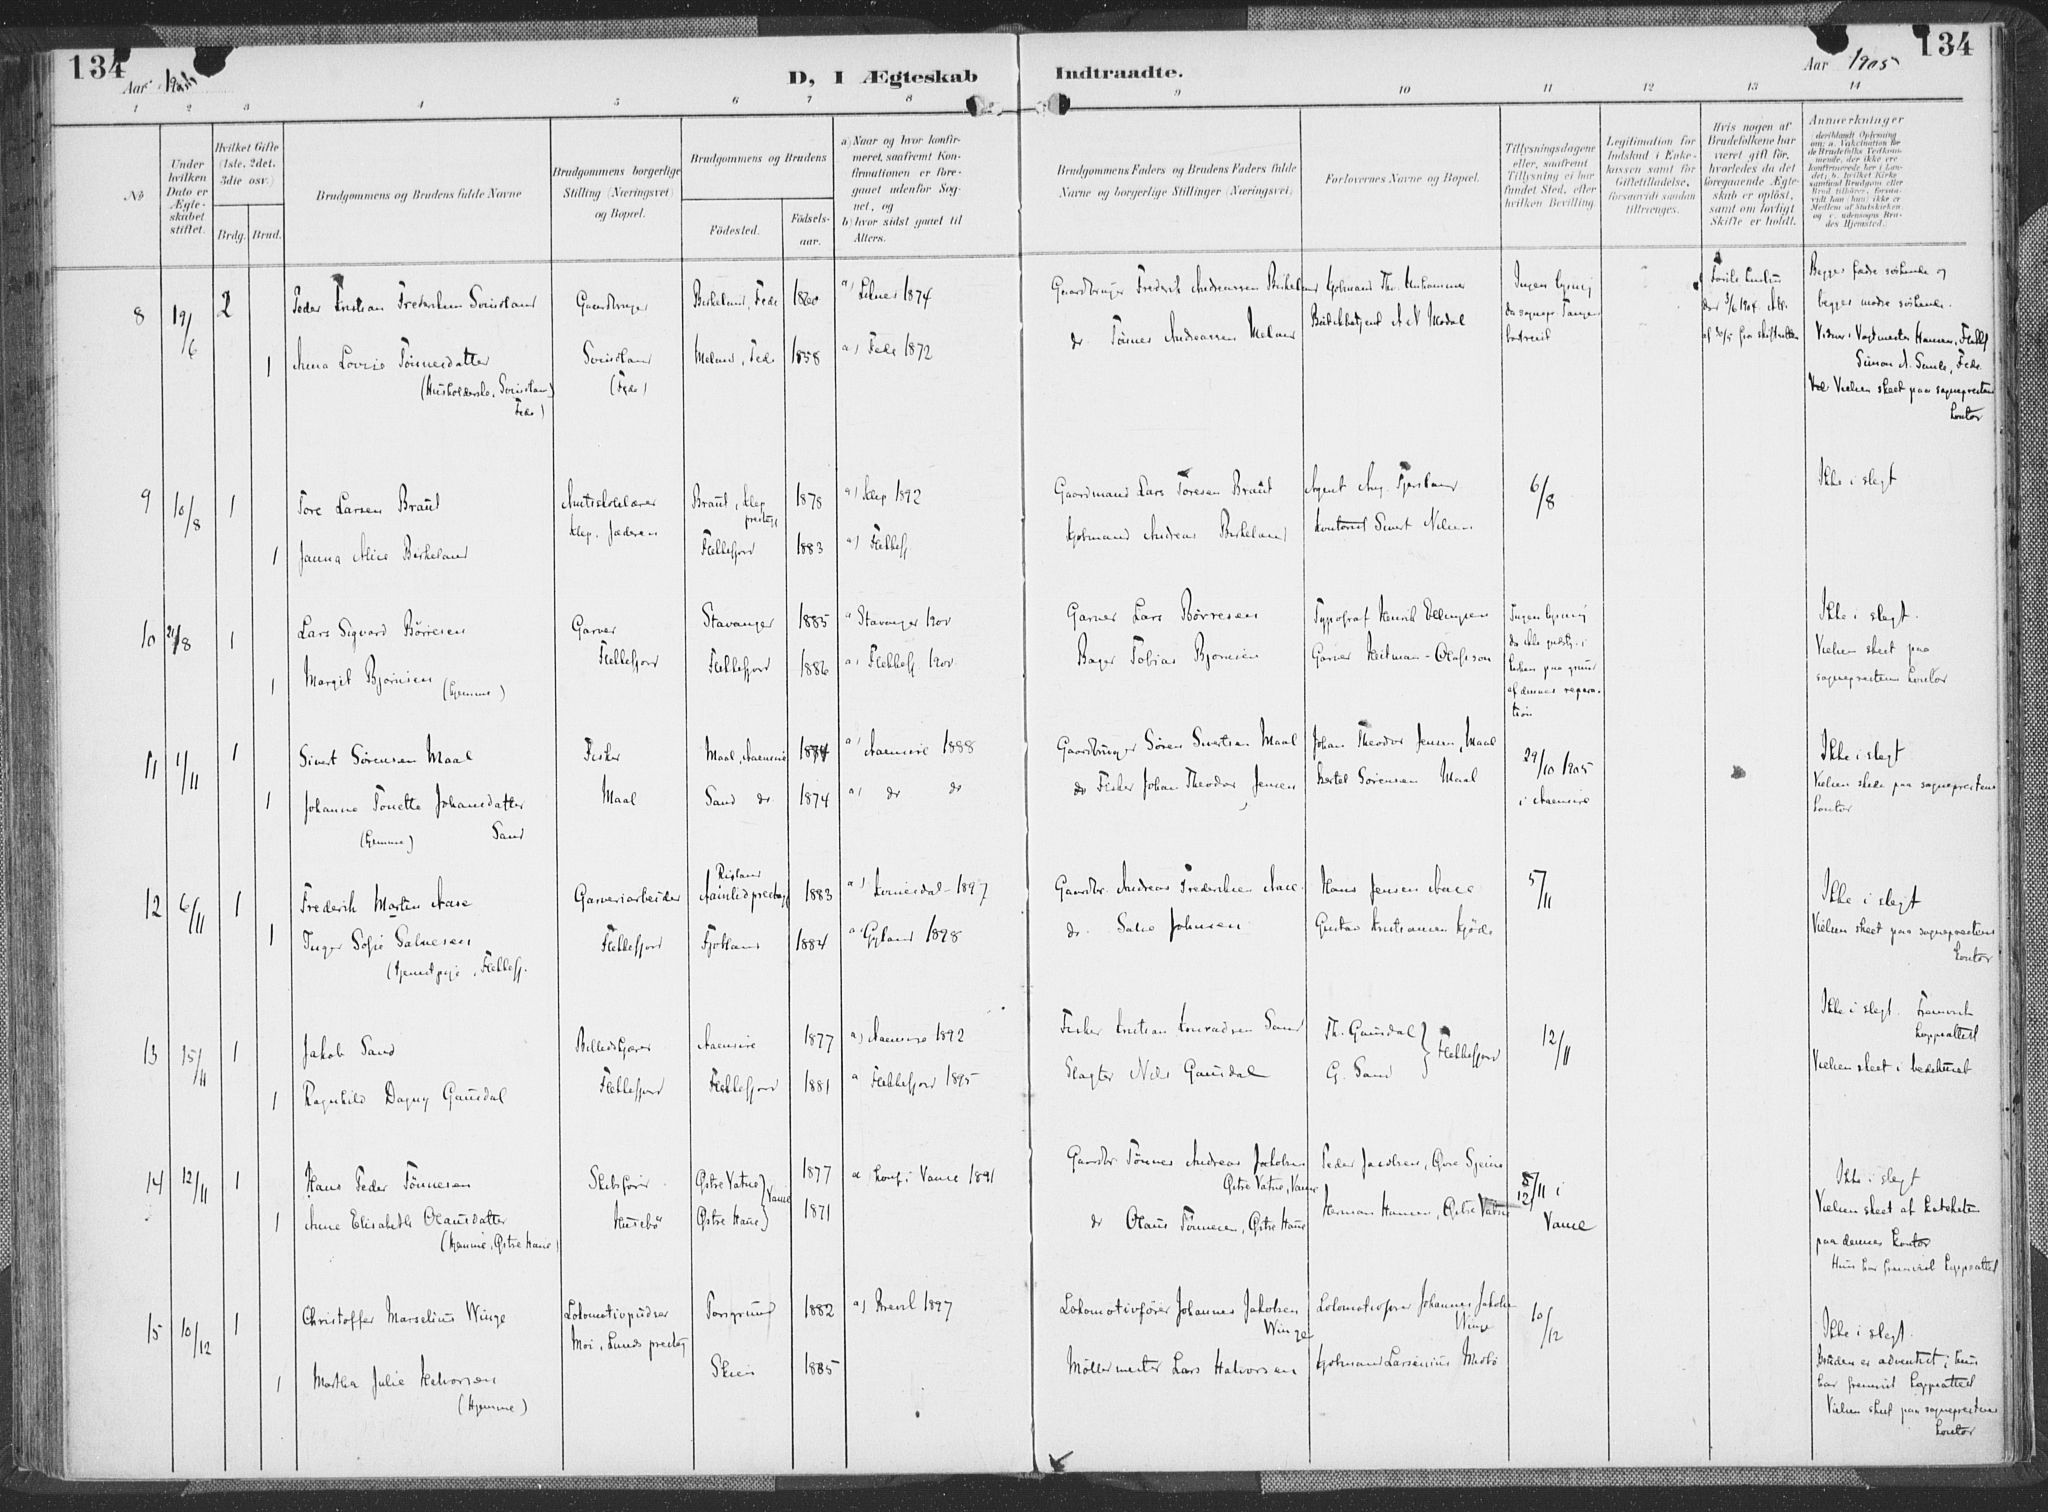 134
Aar 1905
D, I Ægteskab
Indtraadte.
Aar 1905
134
1 2 3 4 5 6 7 8 9 10 11 12 13 14
No
Under hvilken Dato er Ægteskabet stiftet.
Hvilket Gifte (1ste, 2det, 3die osv.)
Brdg. Brud.
Brudgommens og Brudens fulde Navne
Brudgommens borgerlige Stilling (Næringsvei) og Bopæl.
Brudgommens og Brudens
Fødested.
Fødselsaar.
a) Naar og hvor konfirmeret, saafremt Konfirmationen er foregaaet udenfor Sognet, og
b) hvor sidst gaaet til Alters.
Brudgommens Faders og Brudens Faders fulde Navne og borgerlige Stillinger (Næringsvei)
Forlovernes Navne og Bopæl.
Tillysningsdagene eller, saafremt Tillysning ei har fundet Sted, efter hvilken Bevilling.
Legitimation for Indskud i Enkekassen samt for Giftetilladelse, forsaavidt saadan tiltrænges.
Hvis nogen af Brudefolkene har været gift før, hvorledes da det foregaaende Ægteskab er opløst, samt om lovligt Skifte er holdt.
Anmærkninger
8 19/6 2 Peder Kristian Frederiksen Svindland Gaardbruger Birkeland, Fede 1860 a) Liknes 1874 Gaardbruger Frederik Andreassen Birkeland Kjøbmand Th. Unhammer Ingen lysning Begges fædre søskende og
begges mødre søskende.
1 Anna Lovise Tønnesdatter Svindland Meland, Fede 1858 a) Fede 1872 do. Tønnes Andreassen Meland A N Modal
(Husholderske, Svindland, Fede) (Fede)
Vidner: Vagtmester Hansen, Flekkef
Simon A. Fede
Vielsen skeet paa sognepresten
kontor
9 10/8 1 Tore Larsen Braut Amtsskolelærer Braut, Klep prestegj 1878 a) Klep 1892 Gaardmand Lars Toresen Braut Agent Aug. Fjersland 6/8 Ikke i slegt
Klep, Jæderen
1 Janna Alice Birkeland Flekkefjord 1883 a) Flekkefj Kjøbmand Andreas Birkeland Kontorist Sivert Nilsen
10 21/8 1 Lars Sigvard Børresen Garver Stavanger 1885 a Stavanger 1900 Garver Lars Børresen Typograf Henrik Ellingsen Ingen lysning Ikke i slegt.
Flekkefjord
1 Margit Bjørnsen (hjemme) Flekkefjord 1886 a) Flekkefj 1900 Bager Tobias Bjørnsen Garver Heitman-Olafsson
kirken paa grund af dennes reparation
Vielsen skeet paa
sogneprestens kontor
11 1/11 1 Sivert Sørensen Maal Fisker Maal, Aaensire 1874 a) Aaensire 1888 Gaardbruger Søren Sivertsen Maal Johan Theodor Jensen, Maal 29/10 1905 Ikke i slegt
i Aaensire
1 Johanne Tonette Johansdatter Sand Maal Sand do 1874 a) do do do Fisker Johan Theodor Jensen Bertel Sørensen Maal
(hjemme)
Vielsen skede paa sogneprestens
kontor
12 6/11 1 Frederik Morten Aase Garveriarbeider Risland Aamlid prestegj 1883 a) Kvinesdal 1897 Gaardbr. Andreas Frederiksen Aase Hans Jensen Aase 5/11 Ikke i slegt
1 Inger Sofie Salvesen Flekkefjord Fjotland 1884 a) Gyland 1898 do. Salve Johnsen Gustav Kristiansen
(tjenestepige, Flekkefj.
Vielsen skeet paa sogneprestens
kontor
13 15/11 1 Jakob Sand Billedskjærer Aaensire 1877 a) Aaensire 1892 Fisker Kristian Konradsen Sand Th. Gausdal 12/11 Ikke i slegt. Fremvist
koppeattest
Flekkefjord
1 Ragnhild Dagny Gausdal Flekkefjord 1881 a Flekkefjord 1895 Slagter Nils Gausdal G. Sand Flekkefjord
Vielsen skeet i bedehuset
14 12/11 1 Hans Peder Tønnesen Skibsfører Østre Vatne 1877 a Konf. i Vanse 1891 Gaardbr Tønnes Andreas Jakobsen Østre Vatne, Vanse Peder Jacobsen 5/11 12/11 i Vanse Ikke i slegt
1 Anne Elisabeth Olausdatter Husebø Østre Haue Vanse 1871 do Olaus Tønnesen, Østre Haue Herman Hansen, Østre Vatne
(hjemme, Østre Haue)
Vielsen skeet af kateketen
paa dennes kontor
Hun har fremvist koppeattest
15 10/12 1 Christoffer Marselius Winge Lokomotivpudser Porsgrund 1882 a) Brevik 1897 Lokomotivfører Johannes Jakobsen Winge Lokomotivfører Johannes Jakobsen Winge 10/12 Ikke i slegt.
Moi, Lunds prestegj
1 Martha Julie Halvorsen Skien 1885 Møllermester Lars Halvorsen Kjøbmand Larsenius
(hjemme)
bruden er adventist; hun
har fremvist koppeattest
Vielsen skeet paa sognepresten
kontor